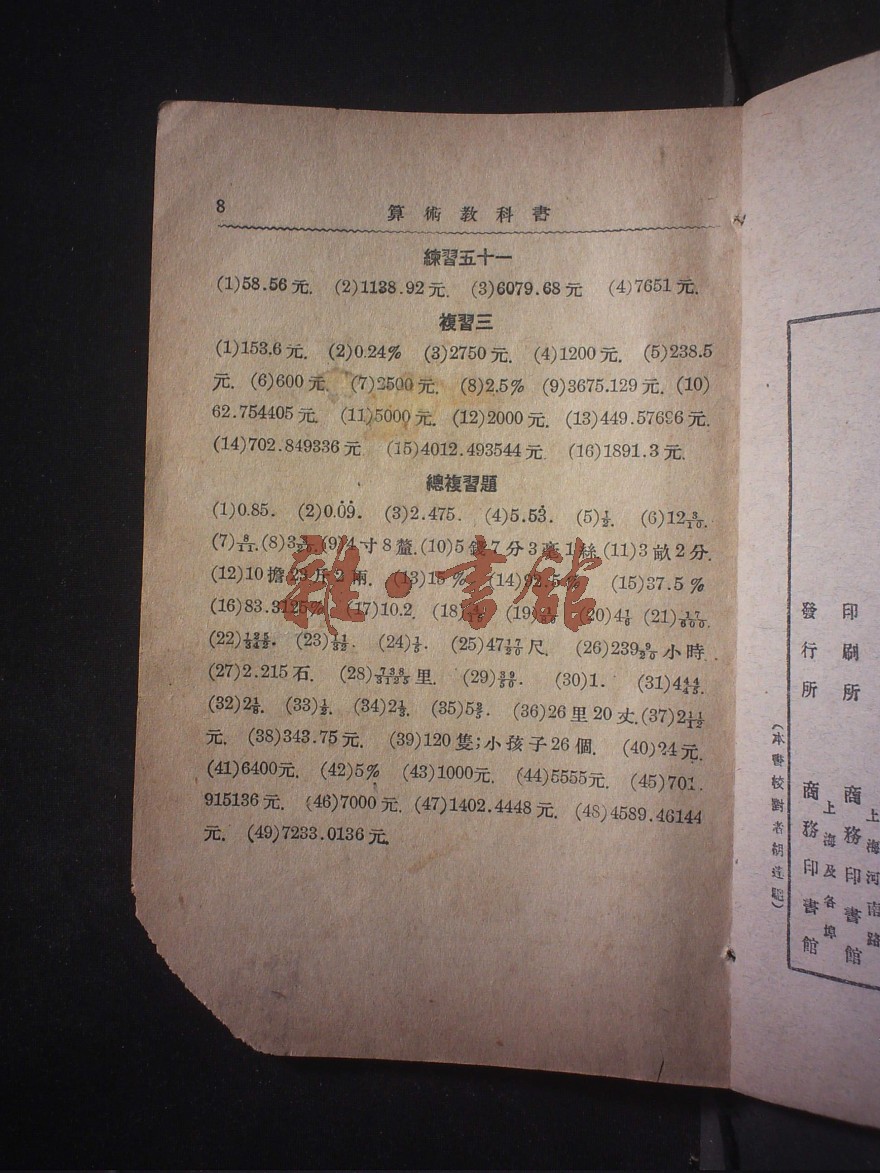 8
算術教科書
練習五十一
(1)58.56元. (2)1138.92元. (3)6079.68元 (4)7651元.
複習三
(1)153.6元. (2)0.24% (3)2750元. (4)1200元. (5)238.5
元. (6)600元. (7)2500元. (8)2.5% (9)3675.129元. (10)
62.754405元. (11)5000元. (12)2000元. (13)449.57696元.
(14)702.849336元 (15)4012.493544元. (16)1891.3元.
總複習題
(1)0.85. (2)0.0̇9̇. (3)2.475. (4)5.53̇. (5)1/2. (6)12 3/10.
(7)8/11. (8)3 (9)4寸8釐. (10)5錢7分3毫1絲. (11)3畝2分.
(12)10擔23斤2兩. (13)15% (14)92.5% (15)37.5%
(16)83.3125% (17)10.2. (18) (19) (20)4 1/6 (21)17/600.
(22)125/342. (23)11/32. (24)1/5. (25)47 17/20尺. (26)239 9/20小時.
(27)2.215石. (28)738/3125里. (29)39/50. (30)1. (31)4 44/45.
(32)2 1/6. (33)1/2. (34)2 1/3. (35)5 3/5. (36)26里20丈. (37)2 11/12
元. (38)343.75元. (39)120隻;小孩子26個. (40)24元.
(41)6400元. (42)5% (43)1000元. (44)5555元. (45)701.
915136元. (46)7000元. (47)1402.4448元. (48)4589.46144
元. (49)7233.0136元.
印刷所
發行所
上海河南路
商務印書館
上海及各埠
商務印書館
(本書校對者胡達聰)
雜·書館